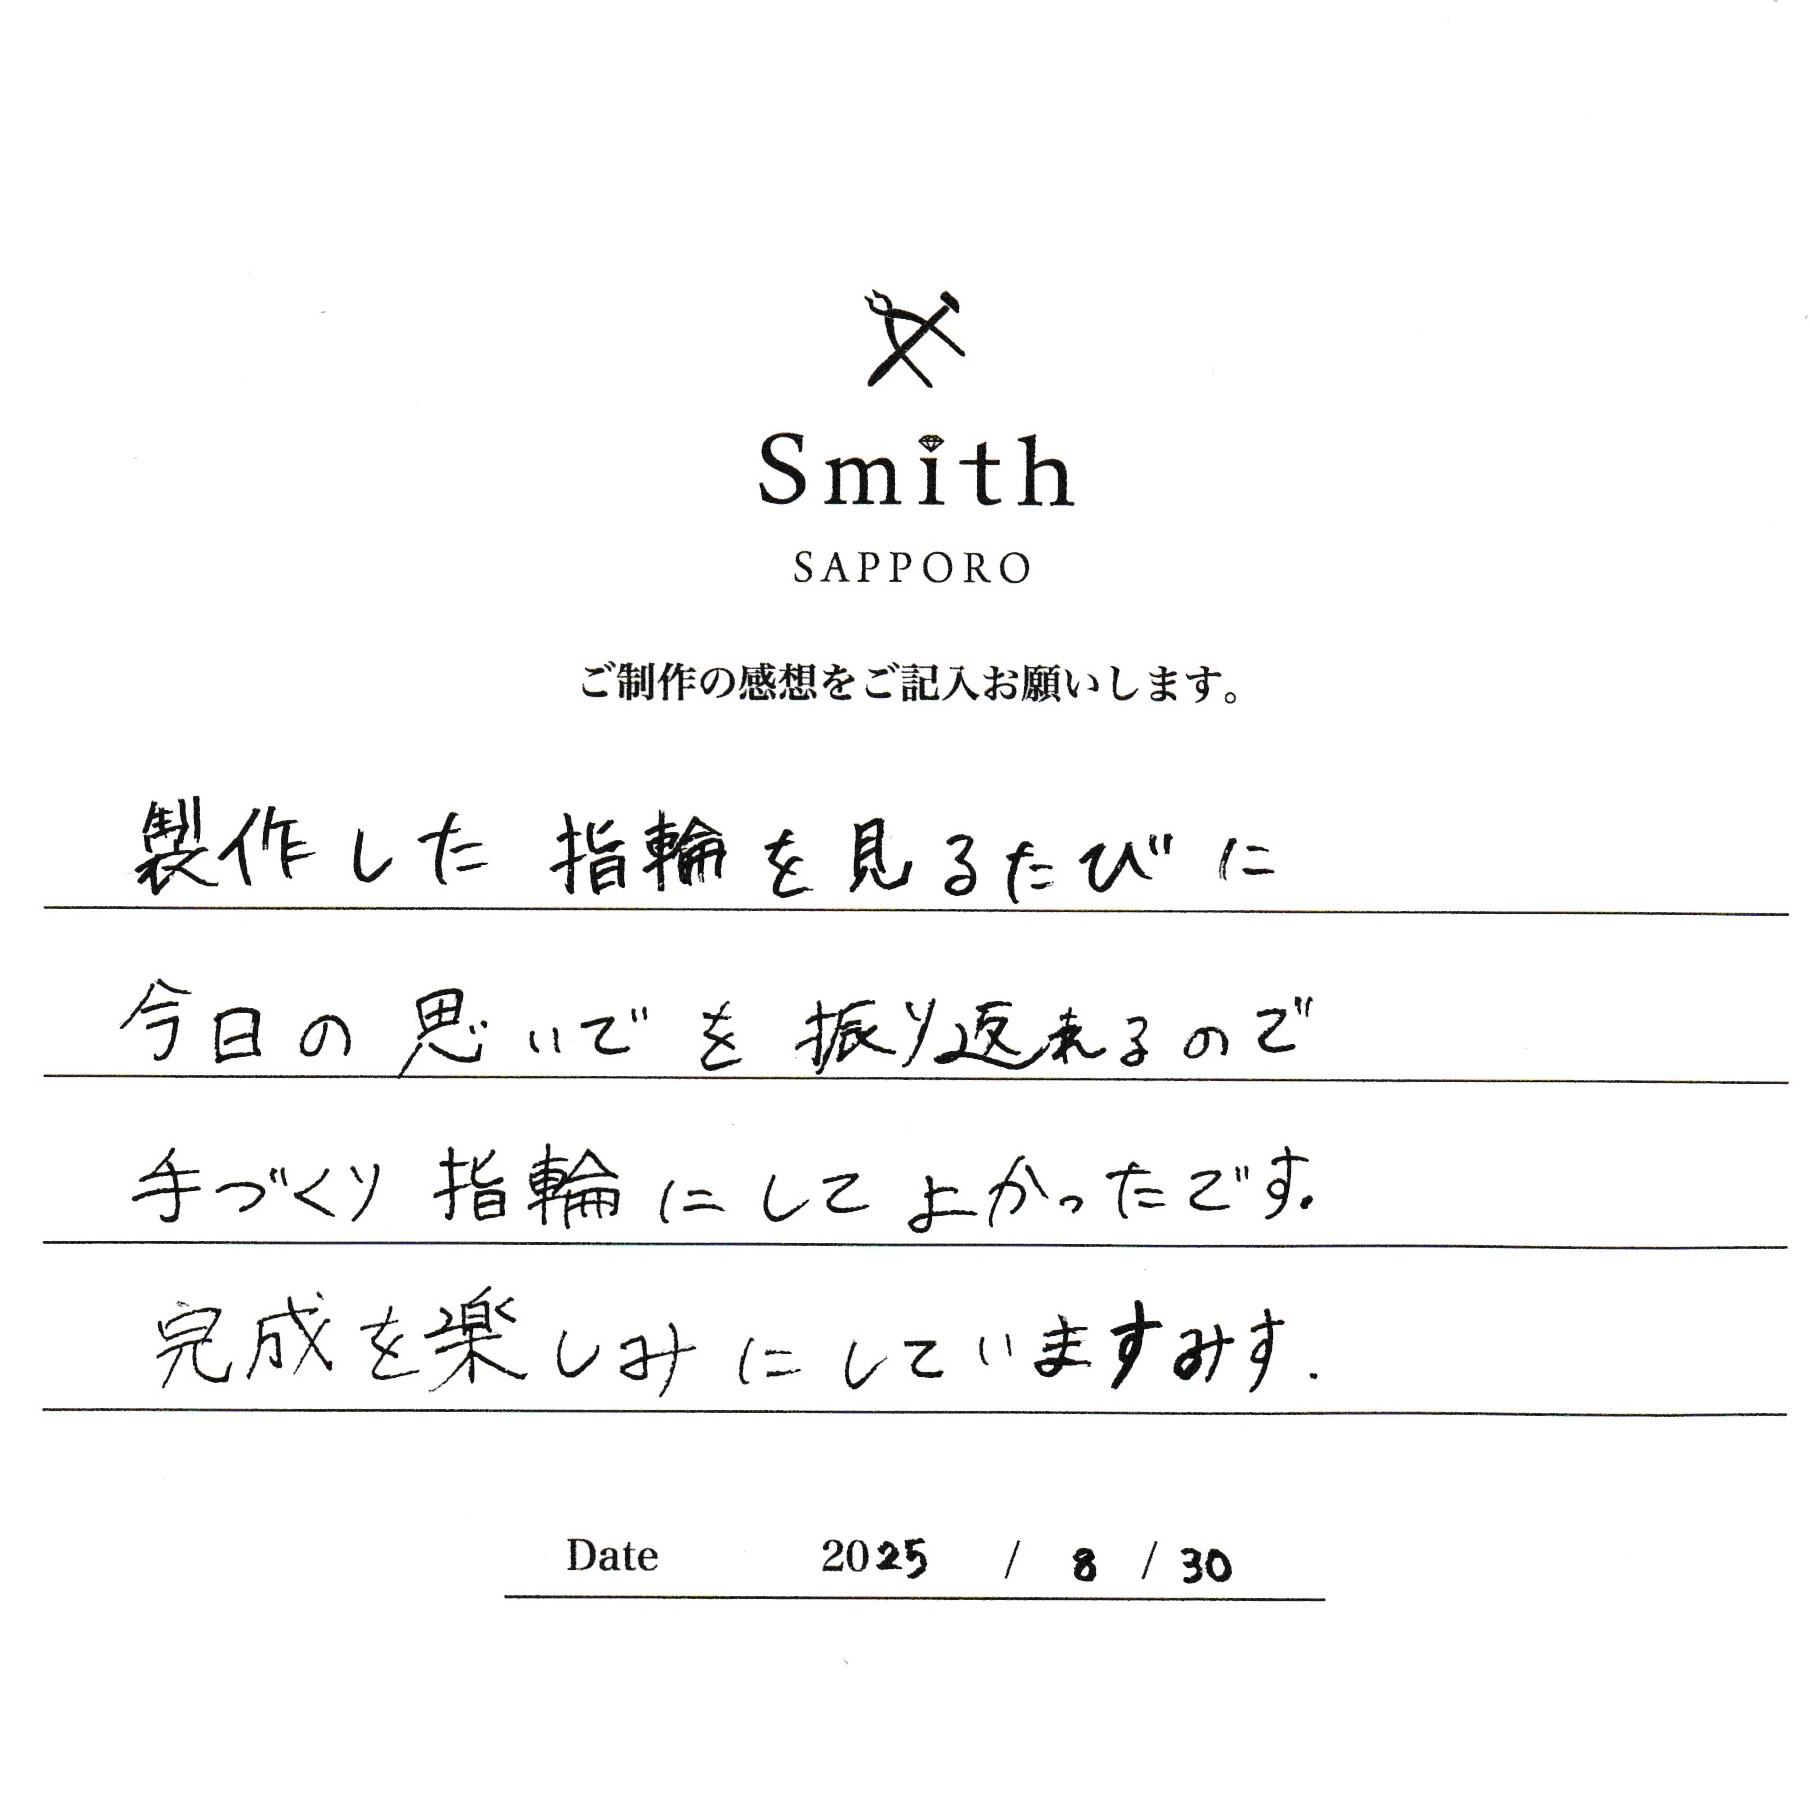 Smith
SAPPORO
ご制作の感想をご記入お願いします。
製作した指輪を見るたびに
今日の思いでを振り返れるので
手づくり指輪にしてよかったです.
完成を楽しみにしていますみす.
Date 2025 / 8 / 30